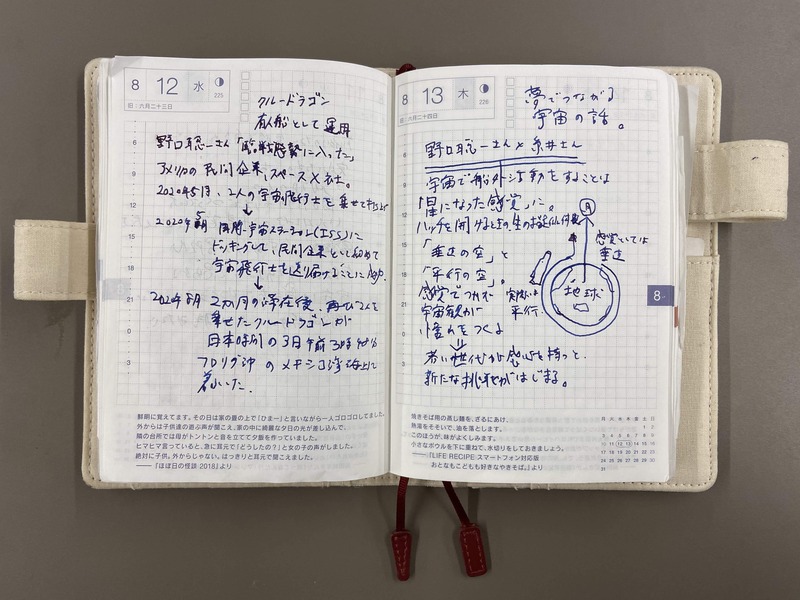 8 12 水
225
旧:六月二十三日
クルードラゴン
有人船として運用
野口聡一さん「臨戦態勢に入った」
アメリカの民間企業、スペースX社。
2020年5月、2人の宇宙飛行士を乗せて
↓
2020年5月 国際宇宙ステーション(ISS)に
ドッキングして、民間企業として初めて
宇宙飛行士を送り届けることに成功。
↓
2020年8月 2カ月の滞在後、再び2人を
乗せたクルードラゴンが
日本時間の3日午前3時
フロリダ沖のメキシコ湾海上に
着いた。
6
9
12
15
18
21
0
3
鮮明に覚えてます。その日は家の畳の上で「ひまー」と言いながら一人ゴロゴロしてました。
外からは子供達の遊ぶ声が聞こえ、家の中に綺麗な夕日の光が差し込んで、
隣の台所では母がトントンと音を立てて夕飯を作っていました。
ヒマヒマ言っていると、急に耳元で「どうしたの?」と女の子の声がしました。
絶対に子供。外からしゃない。はっきりと耳元で聞こえました。
——『ほぼ日の怪談 2018』より
8 13 木
226
旧:六月二十四日
夢でつながる
宇宙の話。
野口聡一さん×糸井さん
宇宙で船外活動をすることは
「星になった感覚」に。
ハッチを開けると
「垂直の空」と
「平行の空」。
感覚でつれた
宇宙観が
憧れをつくる
⇓
若い世代が感心を持つと、
新たな挑戦がはじまる。
感覚としては
垂直
実際は
平行.
地球
6
9
12
15
18
21
0
3
8
焼きそば用の蒸し麺を、ざるにあけ、
熱湯をそそいで、油を落とします。
このほうが、味がよくしみます。
小さなボウルを下に重ねて、水切りをしておきましょう。
——『LIFE RECIPE スマートフォン対応版
おとなもこどもも好きなやきそば。』より
月 火 水 木 金 土 日
1 2
3 4 5 6 7 8 9
10 11 12 13 14 15 16
17 18 19 20 21 22 23
24 25 26 27 28 29 30
31